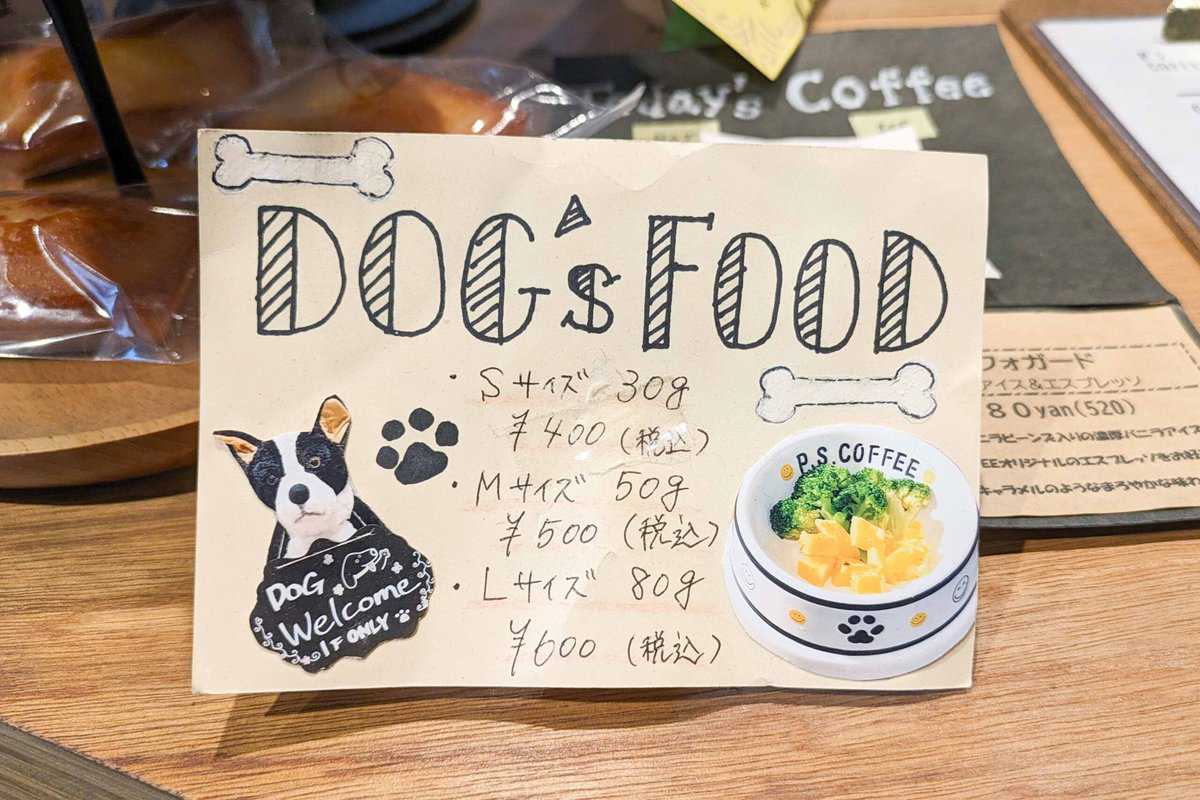 Today's Coffee
DOG's FOOD
・Sサイズ 30g
¥400 (税込)
・Mサイズ 50g
¥500 (税込)
・Lサイズ 80g
¥600 (税込)
DOG
Welcome
IF ONLY
P.S. COFFEE
フォガード
アイス&エスプレッソ
80yan(520)
ニラビーンズ入りの濃厚バニラアイス
EEオリジナルのエスプレッソをお好
キャラメルのようなまろやかな味わ